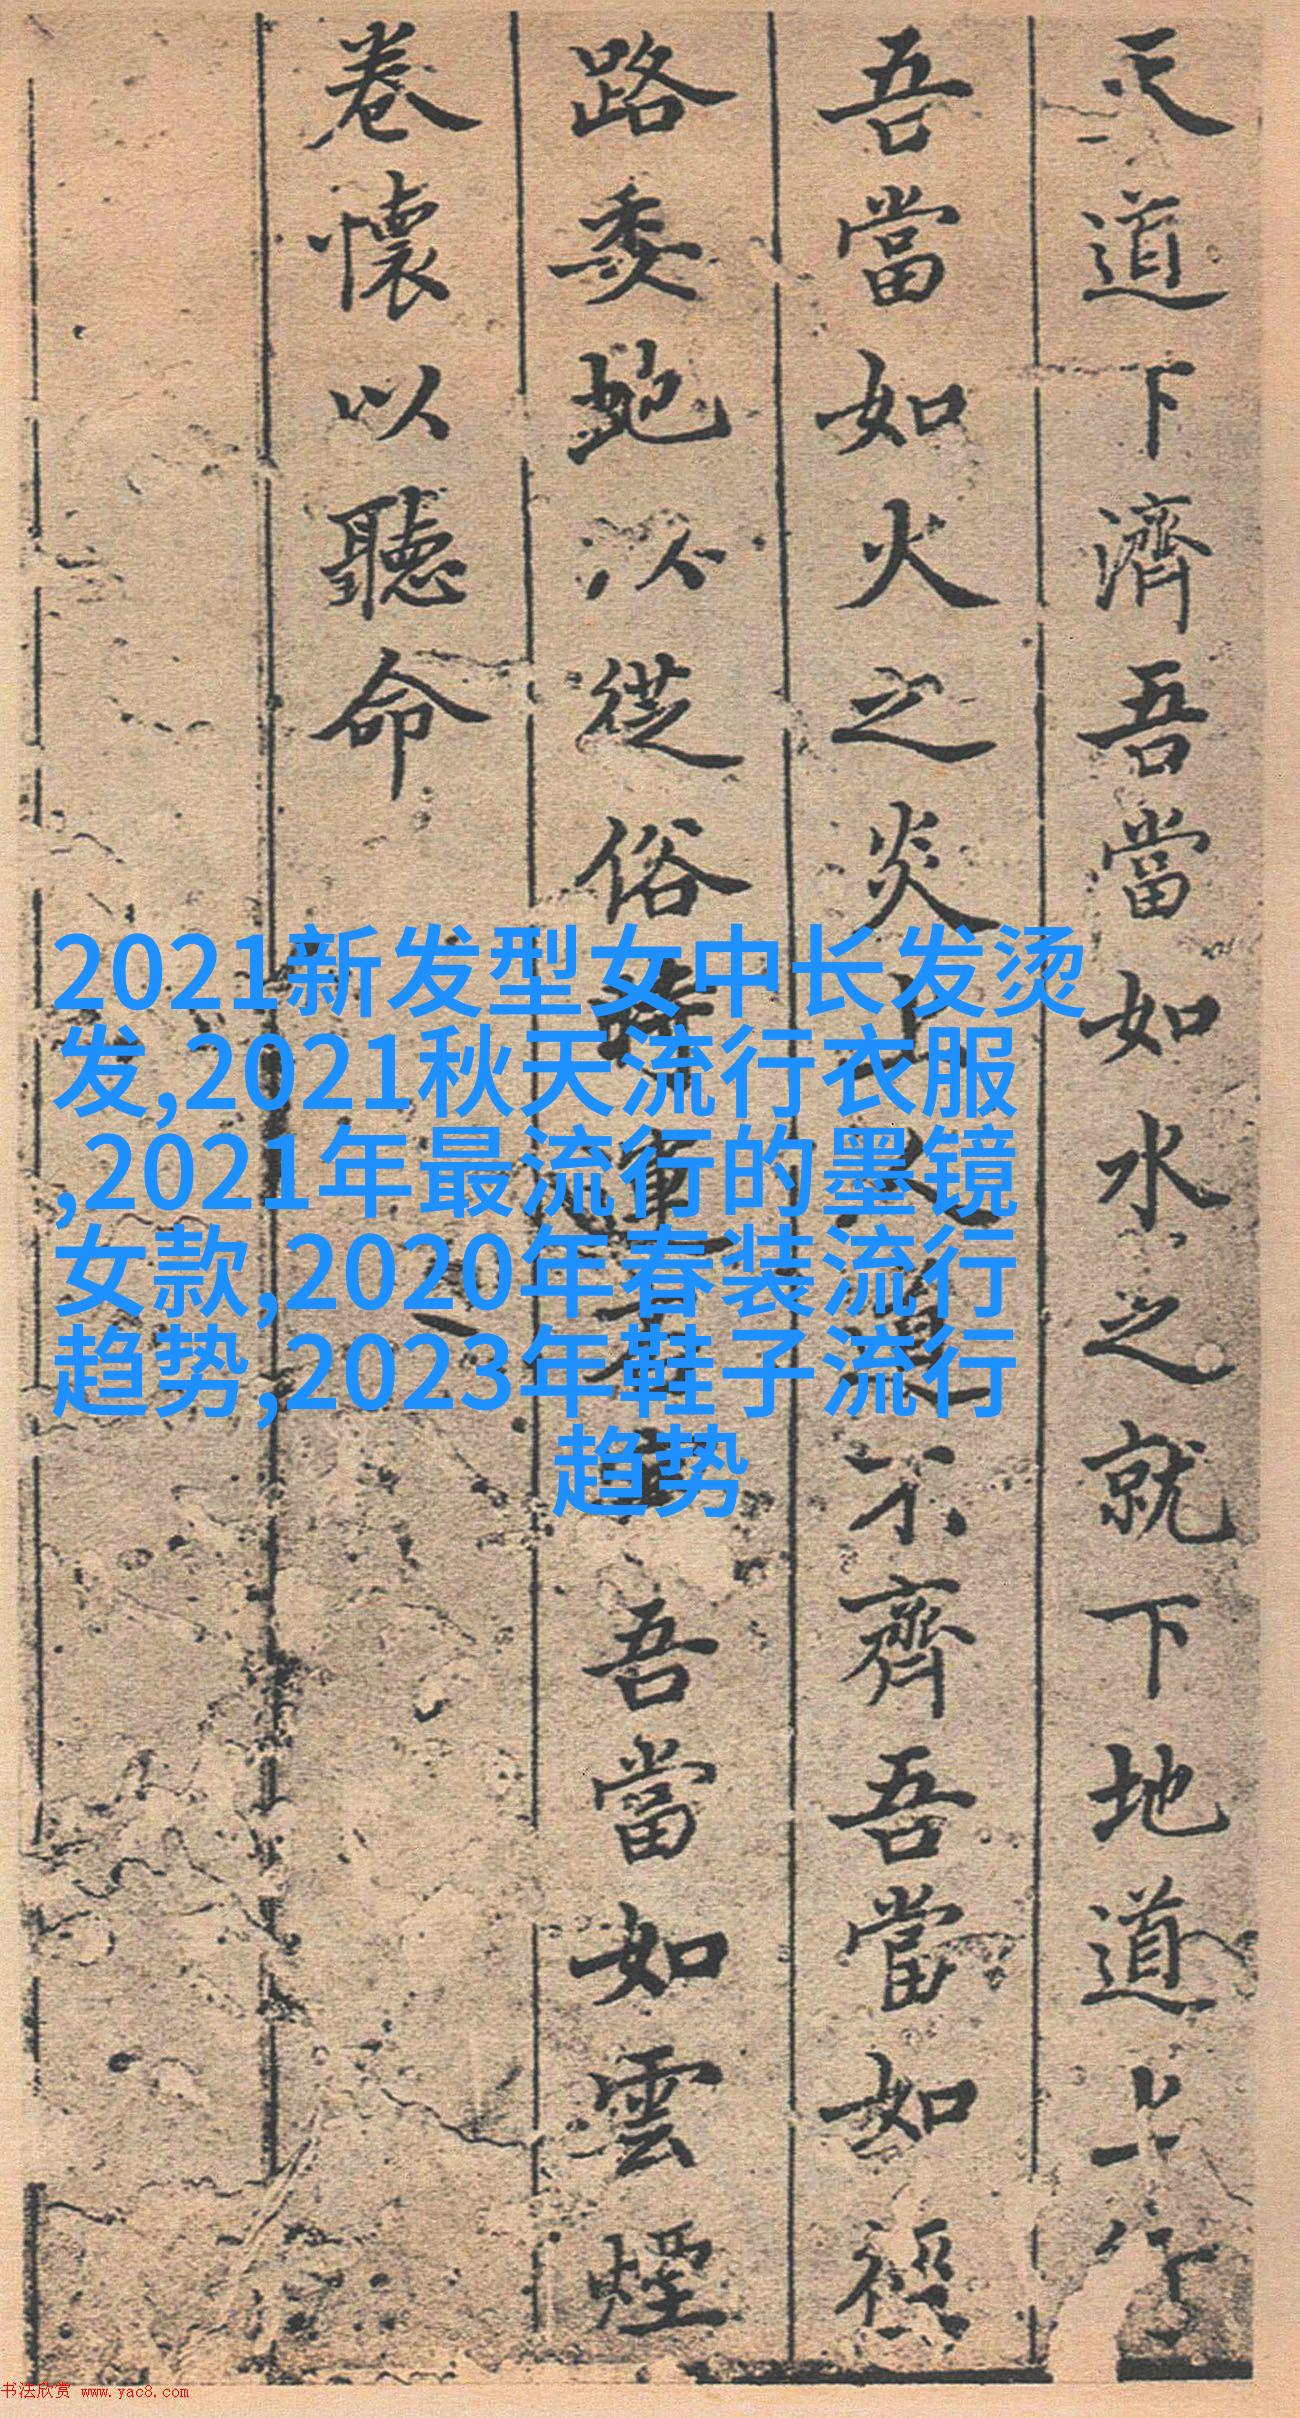 天道下濟吾當如水之就下地道上行
吾當如火之炎上人道不齊吾當如徑
路委虵以從俗時運吾當如雲煙
卷懷以聽命
2021新发型女中长发烫
发,2021秋天流行衣服
,2021年最流行的墨镜
女款,2020年春装流行
趋势,2023年鞋子流行
趋势
书法欣赏 www.yac8.com